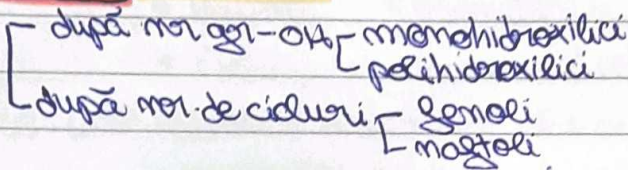 după nr gr-OH monohidroxilici
polihidroxilici
după nr. de cicluri fenoli
naftoli